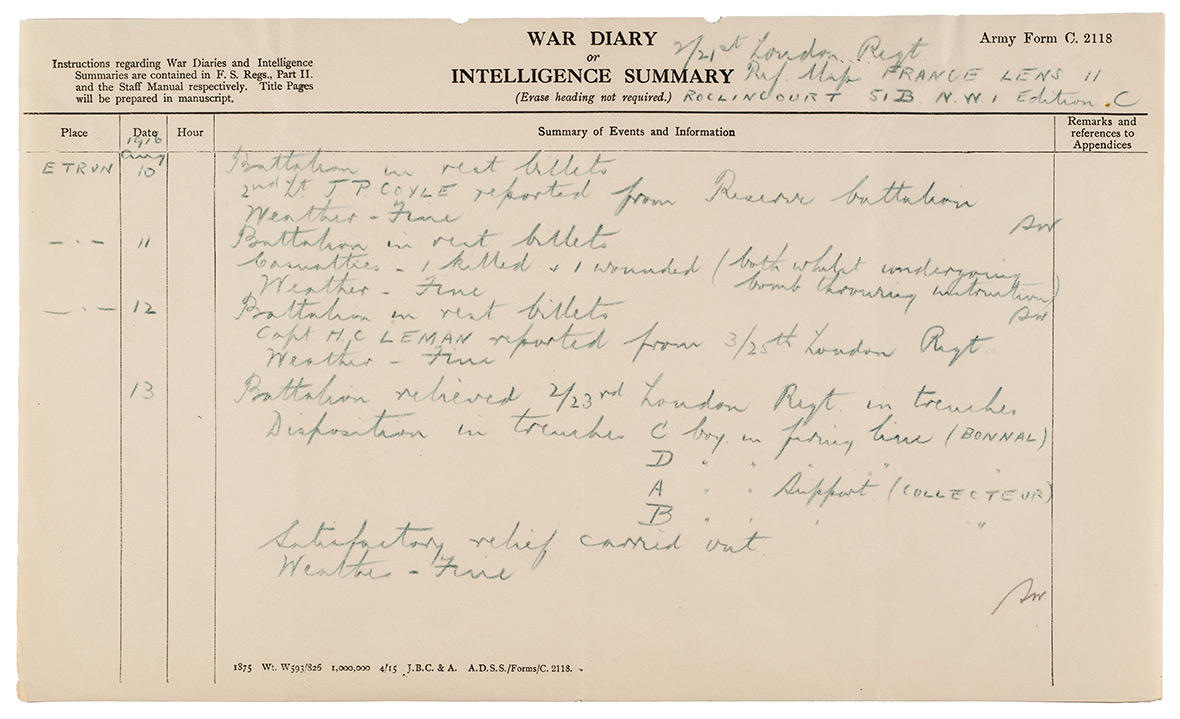 WAR DIARY
or
INTELLIGENCE SUMMARY
(Erase heading not required.)
Instructions regarding War Diaries and Intelligence
Summaries are contained in F. S. Regs., Part II.
and the Staff Manual respectively. Title Pages
will be prepared in manuscript.
2/21st London Regt.
Ref. Map FRANCE LENS 11
ROCLINCOURT 51B N.W 1 Edition . C
Army Form C. 2118
Place Date Hour Summary of Events and Information Remarks and references to Appendices
1916
Aug
ETRUN 10 Battalion in rest billets
2nd Lt J P COYLE reported from Reserve battalion
Weather - Fine
— . — 11 Battalion in rest billets
Casualties - 1 killed + 1 wounded (both whilst undergoing
bomb throwing instruction)
Weather - Fine
— . — 12 Battalion in rest billets
Capt H.C LEMAN reported from 3/25th London Regt.
Weather - Fine
13 Battalion relieved 2/23rd London Regt. in trenches
Disposition in trenches C Coy. in firing line (BONNAL)
D " " " "
A " " Support (COLLECTEUR)
B " " " "
Satisfactory relief carried out
Weather - Fine
1875 Wt. W593/826 1,000,000 4/15 J.B.C. & A. A.D.S.S./Forms/C. 2118.